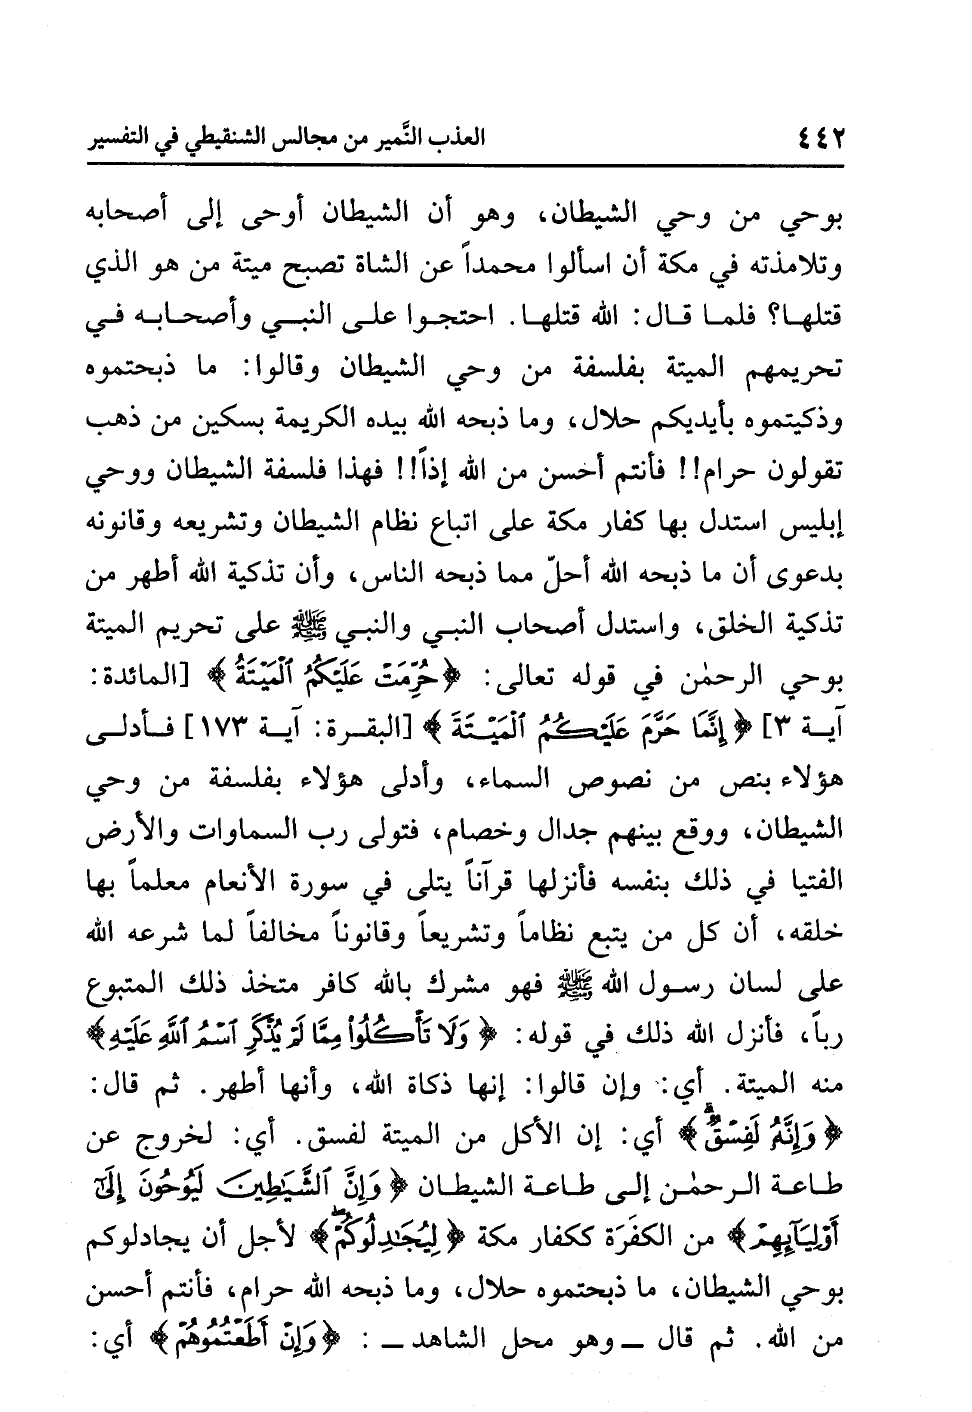 ٤٤٢ العذب النَّمير من مجالس الشنقيطي في التفسير
بوحي من وحي الشيطان، وهو أن الشيطان أوحى إلى أصحابه
وتلامذته في مكة أن اسألوا محمداً عن الشاة تصبح ميتة من هو الذي
قتلهـا؟ فلمـا قـال: الله قتلهـا. احتجـوا علـى النبـي وأصحـابـه فـي
تحريمهم الميتة بفلسفة من وحي الشيطان وقالوا: ما ذبحتموه
وذكيتموه بأيديكم حلال، وما ذبحه الله بيده الكريمة بسكين من ذهب
تقولون حرام!! فأنتم أحسن من الله إذاً!! فهذا فلسفة الشيطان ووحي
إبليس استدل بها كفار مكة على اتباع نظام الشيطان وتشريعه وقانونه
بدعوى أن ما ذبحه الله أحلّ مما ذبحه الناس، وأن تذكية الله أطهر من
تذكية الخلق، واستدل أصحاب النبـي والنبـي ﷺ على تحريم الميتة
بوحي الرحمٰن في قوله تعالى: ﴿حُرِّمَتْ عَلَيْكُمُ ٱلْمَيْتَةُ﴾ [المائدة:
آيـة ٣] ﴿إِنَّمَا حَرَّمَ عَلَيْكُمُ ٱلْمَيْتَةَ﴾ [البقـرة: آيـة ١٧٣] فـأدلـى
هؤلاء بنص من نصوص السماء، وأدلى هؤلاء بفلسفة من وحي
الشيطان، ووقع بينهم جدال وخصام، فتولى رب السماوات والأرض
الفتيا في ذلك بنفسه فأنزلها قرآناً يتلى في سورة الأنعام معلماً بها
خلقه، أن كل من يتبع نظاماً وتشريعاً وقانوناً مخالفاً لما شرعه الله
على لسان رسـول الله ﷺ فهو مشرك بالله كافر متخذ ذلك المتبوع
رباً، فأنزل الله ذلك في قوله: ﴿وَلَا تَأْكُلُواْ مِمَّا لَمْ يُذْكَرِ ٱسْمُ ٱللَّهِ عَلَيْهِ﴾
منه الميتة. أي: وإن قالوا: إنها ذكاة الله، وأنها أطهر. ثم قال:
﴿وَإِنَّهُ لَفِسْقٌۗ﴾ أي: إن الأكل من الميتة لفسق. أي: لخروج عن
طـاعـة الـرحمٰـن إلـى طـاعـة الشيطـان ﴿وَإِنَّ ٱلشَّيَٰطِينَ لَيُوحُونَ إِلَىٰٓ
أَوْلِيَآئِهِمْ﴾ من الكفَرَة ككفار مكة ﴿لِيُجَٰدِلُوكُمْۖ﴾ لأجل أن يجادلوكم
بوحي الشيطان، ما ذبحتموه حلال، وما ذبحه الله حرام، فأنتم أحسن
من الله. ثم قال ــ وهو محل الشاهد ــ : ﴿وَإِنْ أَطَعْتُمُوهُمْ﴾ أي: